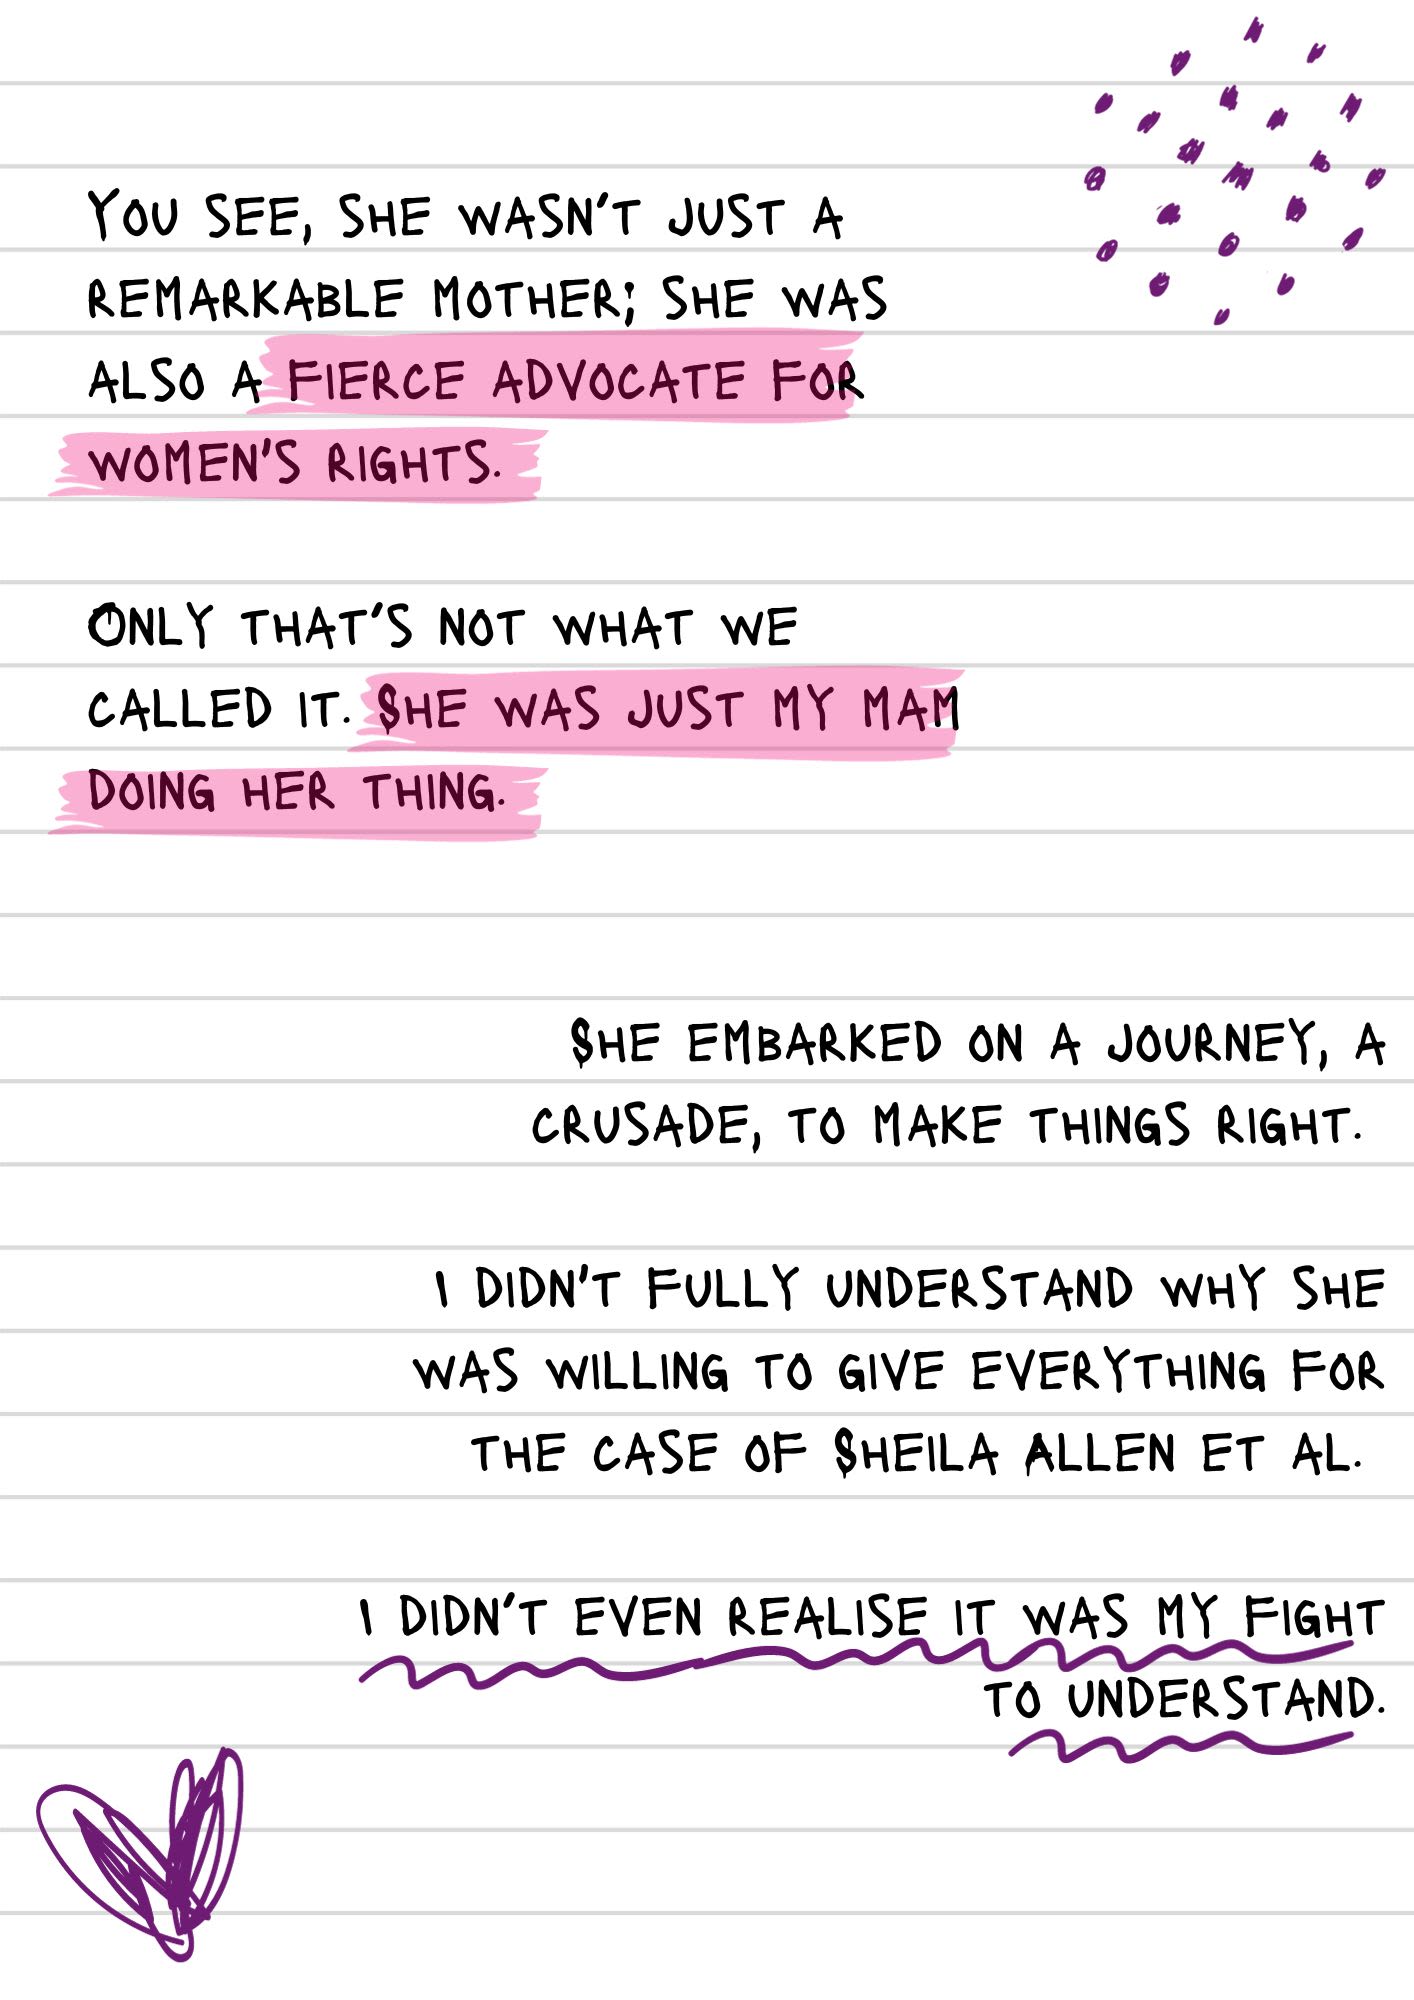 You see, she wasn't just a
remarkable mother; she was
also a fierce advocate for
women's rights.
Only that's not what we
called it. She was just my mam
doing her thing.
She embarked on a journey, a
crusade, to make things right.
I didn't fully understand why she
was willing to give everything for
the case of Sheila Allen et al.
I didn't even realise it was my fight
to understand.